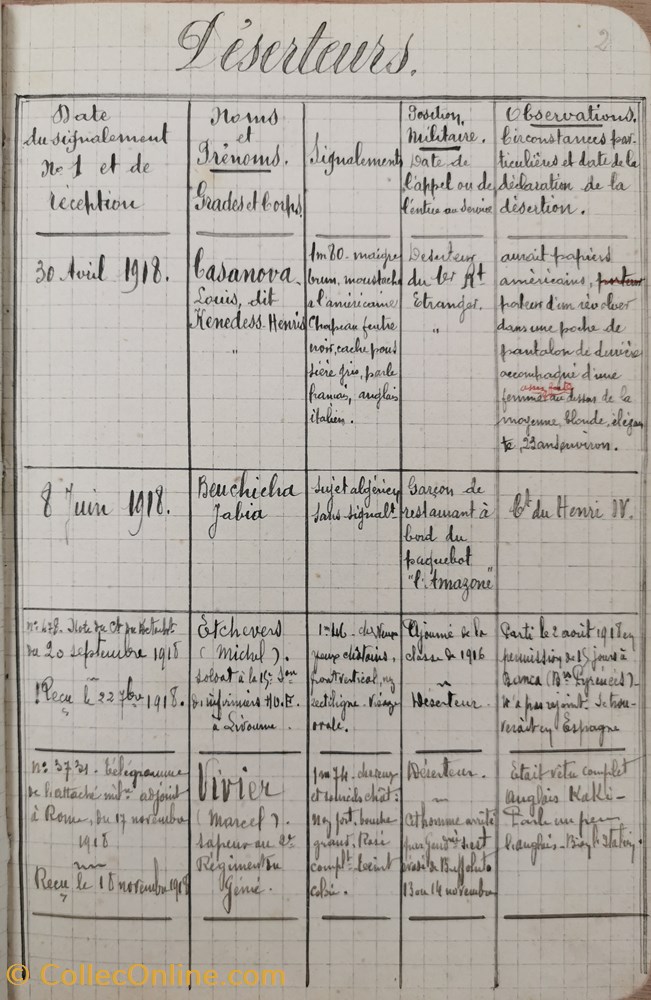 2
Déserteurs.
Date
du signalement
No 1 et de
réception
Noms
et
Prénoms.
Grades et Corps.
Signalements
Position
Militaire.
Date de
l'appel ou de
l'entrée au service
Observations.
Circonstances par-
ticulières et date de la
déclaration de la
désertion.
30 Avril 1918.
Casanova
Louis, dit
Kenedess-Henris
"
1m80- maigre
brun, moustache
à l'américaine
Chapeau feutre
noir, cache pous
sière gris, parle
français, anglais
italien.
Deserteur
du 1er Rt
Etranger.
"
aurait papiers
américains, porteur
porteur d'un révolver
dans une poche de
pantalon de derrière
accompagné d'une
femme au dessus de la
moyenne, blonde, élégan
te, 23 ans environ.
8 Juin 1918.
Benchicha
Jabia
Sujet algérien
Sans signalt
Garçon de
restaurant à
bord du
paquebot
"l'Amazone"
Ct du Henri IV.
du 20 septembre 1918
Reçu le 22 7bre 1918.
Etchevers
(Michel).
soldat à la 15e Son
d'infirmiers H.O.E.
à Livourne.
yeux châtains,
front vertical, nez
rectiligne. Visage
ovale.
Ajourné de la
classe de 1916
Déserteur.
Parti le 2 août 1918 en
permission de 15 jours à
Banca (Bses Pyrénées)-
N'a pas rejoint. Se trou-
verait en Espagne
No 3731. Télégramme
de l'attaché milre adjoint
à Rome, du 17 novembre
1918
Reçu le 18 novembre 1918
Vivier
(Marcel).
sapeur au 2e
Régiment du
Génie.
1m74- cheveux
et sourcils chât:
Nez fort, bouche
grand, Rasé
complt. teint
Déserteur.
Cet homme arrêté
par Gendrie s'est
évadé de Buffoluto
13 au 14 novembre
Etait vêtu complet
anglais Kaki-
Parle un peu
l'anglais- Bien l'Italien.
© CollecOnline.com